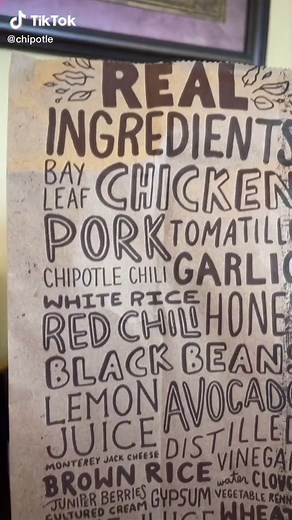 TikTok
@chipotle
REAL
INGREDIENTS
BAY LEAF CHICKEN
PORK TOMATILL
CHIPOTLE CHILI GARLIC
WHITE RICE
RED CHILI HONE
BLACK BEAN
LEMON JUICE AVOCADO
DISTILLED
MONTEREY JACK CHEESE VINEGAR
BROWN RICE water CLOVE
JUNIPER BERRIES GYPSUM VEGETABLE RENN
CULTURED CREAM WHEAT